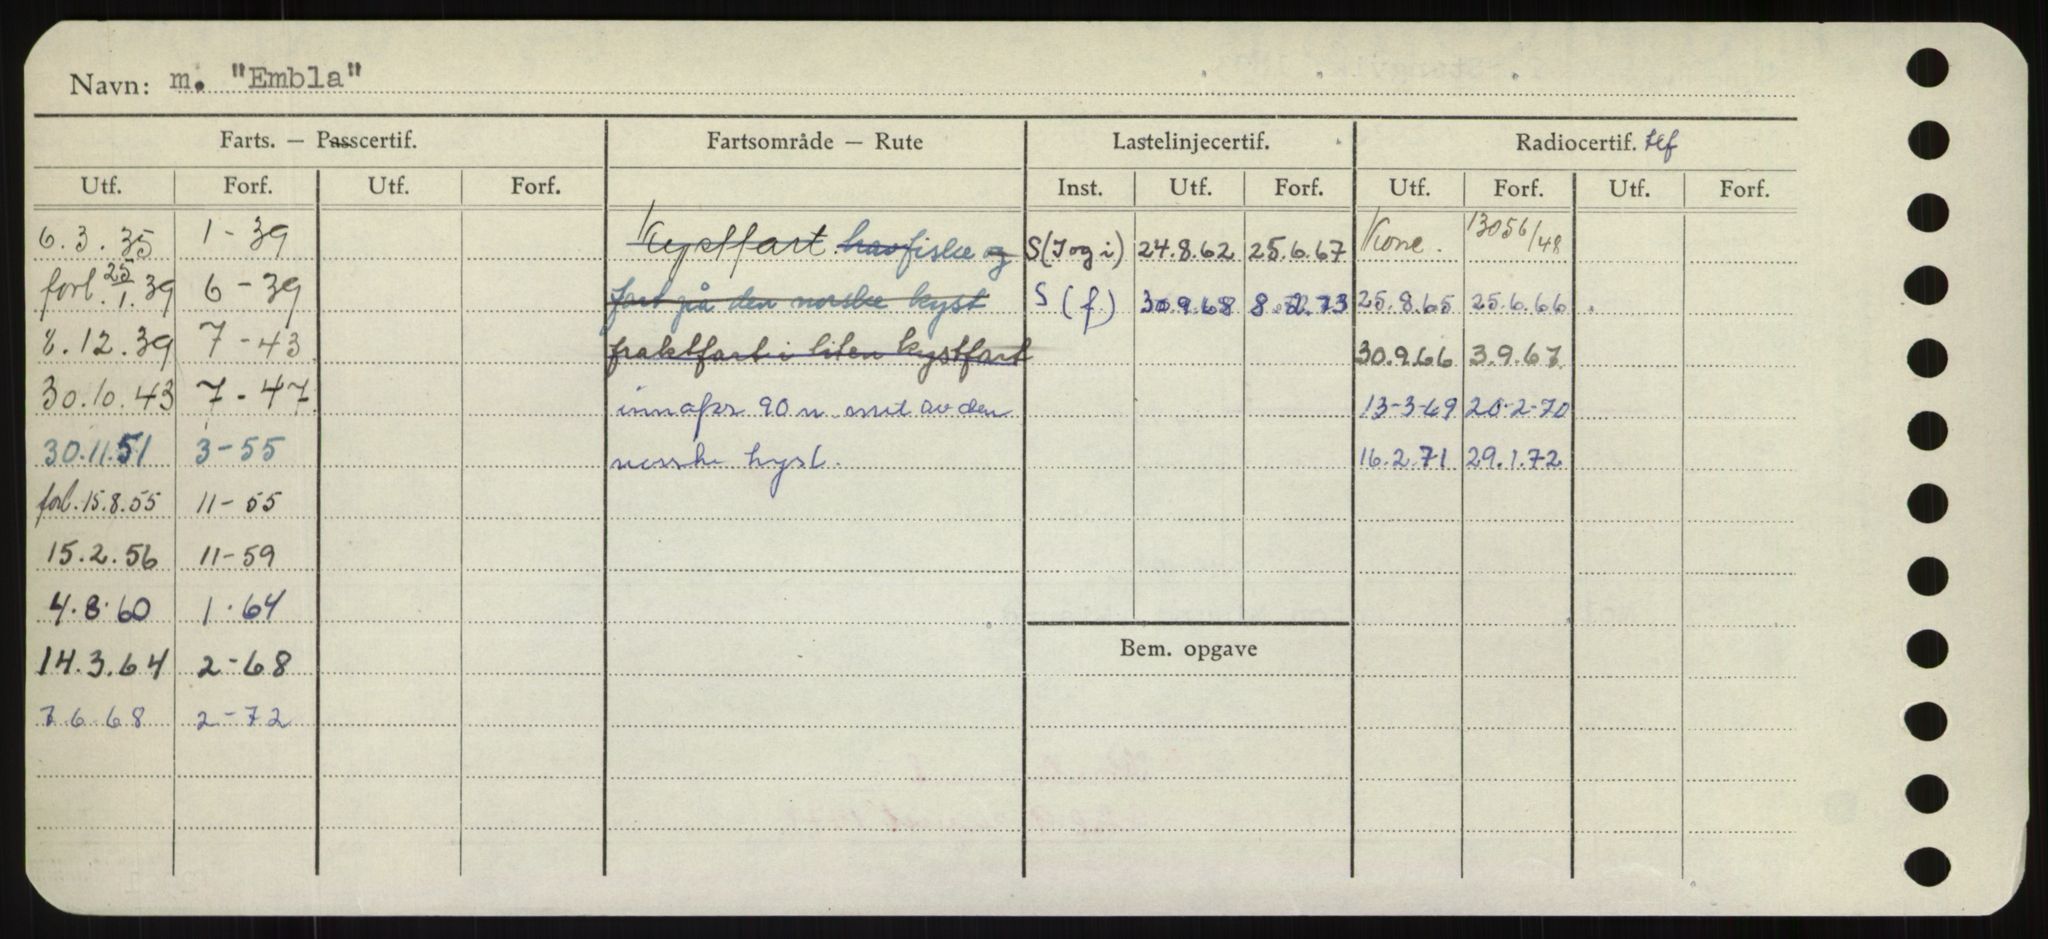 Navn: m. "Embla"
Farts. — Passcertif. Fartsområde — Rute Lastelinjecertif. Radiocertif. tlf
Utf. Forf. Utf. Forf. Inst. Utf. Forf. Utf. Forf. Utf. Forf.
6.3.35 1-39 Kystfart havfiske og S(I og i) 24.8.62 25.6.67 Konc. 13056/48
forl. 25/1.39 6-39 fart på den norske kyst S(f) 30.9.68 25.8.65 25.6.66
8.12.39 7-43 fraktfart i liten kystfart 30.9.66 3.9.67
30.10.43 7-47 innafor 90 n av den 13-3-69 20-2-70
30.11.51 3-55 norske kyst. 16.2.71 29.1.72
forl. 15.8.55 11-55
15.2.56 11-59
4.8.60 1.64
Bem. opgave
14.3.64 2-68
7.6.68 2-72